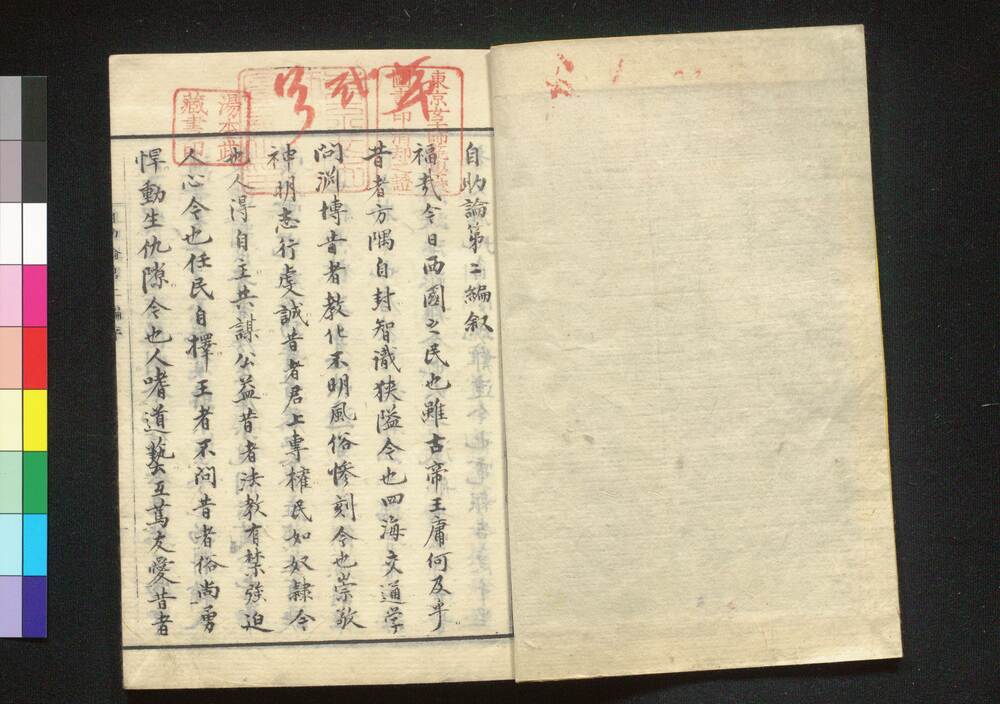 自助論第二編叙
福哉今日西國之民也雖古帝王庸何及乎
昔者方隅自封智識狹隘今也四海交通学
问淵博昔者教化不明風俗慘刻今也崇敬
神明志行虔誠昔者君上專權民如奴隸今
也人得自主共謀公益昔者法教有禁強迫
人心今也任民自擇王者不问昔者俗尚勇
悍動生仇隙今也人嗜道藝互篤友愛昔者
湯本武
藏書印